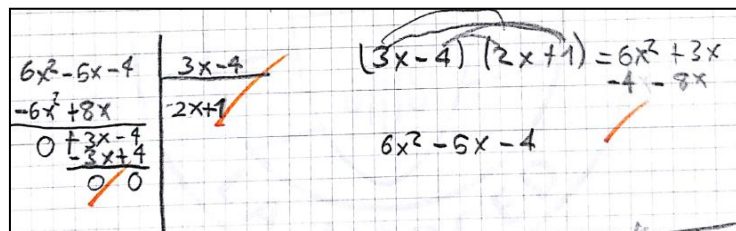 6x² - 5x - 4 | 3x - 4
-6x² + 8x | 2x + 1
0 + 3x - 4
- 3x + 4
0 0
(3x - 4) (2x + 1) = 6x² + 3x
- 4 - 8x
6x² - 5x - 4